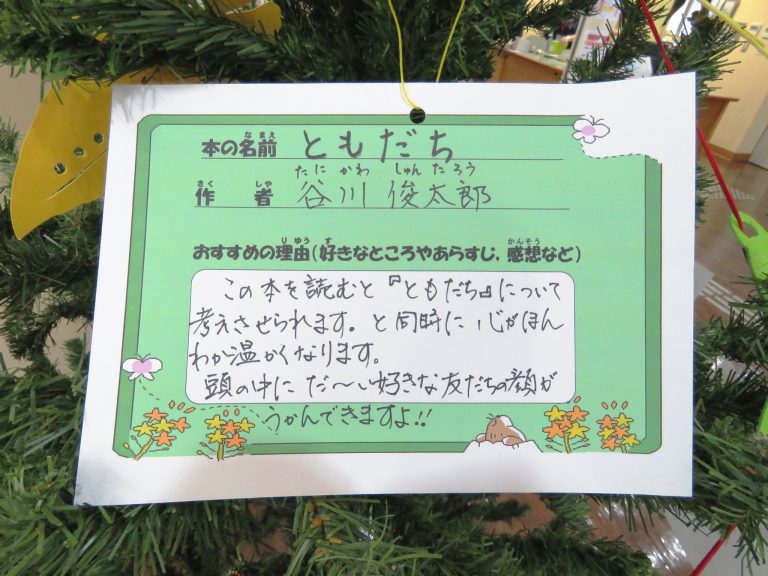 本の名前 ともだち
作者 谷川 俊太郎
おすすめの理由(好きなところやあらすじ、感想など)
この本を読むと『ともだち』について
考えさせられます。と同時に心がほん
わか温かくなります。
頭の中にだ〜い好きな友だちの顔が
うかんできますよ!!